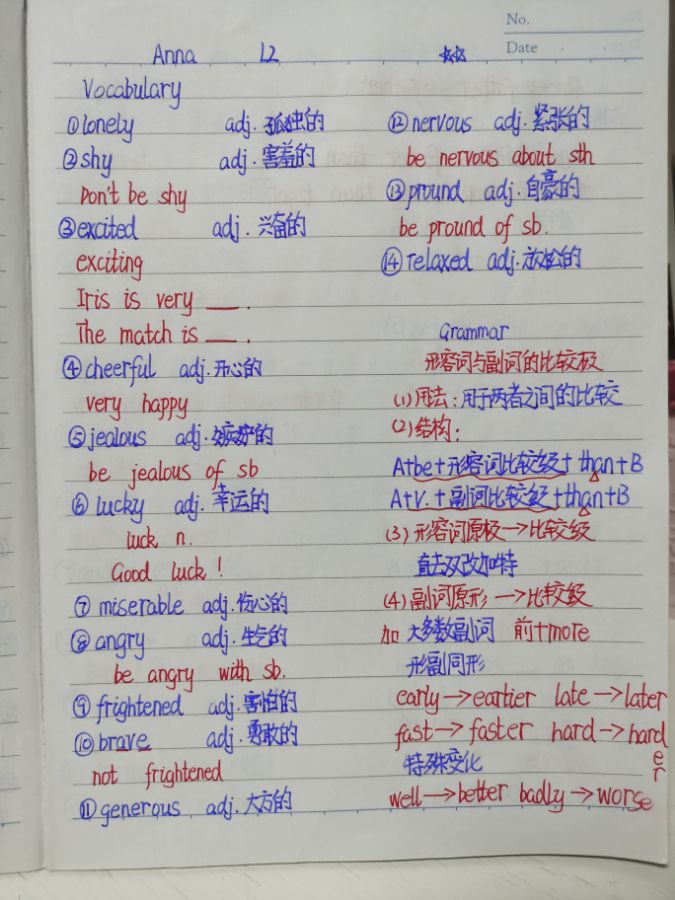 No.
Date
Anna L2 ☆☆
Vocabulary
①lonely adj. 孤独的
②shy adj. 害羞的
Don't be shy
③excited adj. 兴奋的
exciting
Iris is very ___ .
The match is ___ .
④cheerful adj. 开心的
very happy
⑤jealous adj. 嫉妒的
be jealous of sb
⑥lucky adj. 幸运的
luck n.
Good luck !
⑦miserable adj. 伤心的
⑧angry adj. 生气的
be angry with sb.
⑨frightened adj. 害怕的
⑩brave adj. 勇敢的
not frightened
⑪generous adj. 大方的
⑫nervous adj. 紧张的
be nervous about sth
⑬pround adj. 自豪的
be pround of sb.
⑭relaxed adj. 放松的
Grammar
形容词与副词的比较极
(1)用法:用于两者之间的比较
(2)结构:
A+be+形容词比较级+than+B
A+V.+副词比较级+than+B
(3)形容词原极→比较级
直去双改加特
(4)副词原形→比较级
加 大多数副词 前+more
形副同形
early→eartier late→later
fast→faster hard→harder
特殊变化
well→better badly→worse